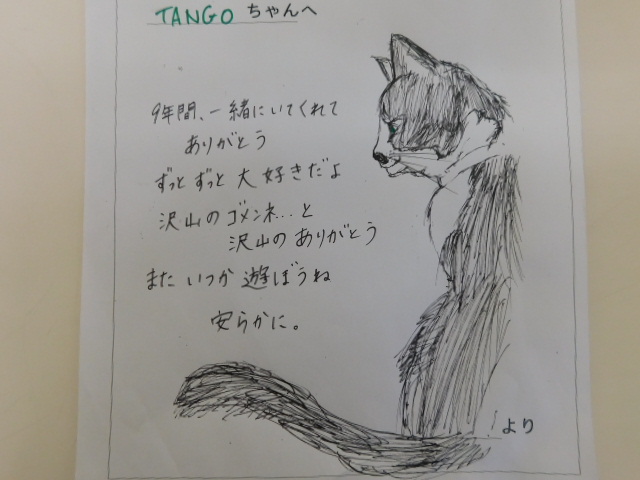 TANGOちゃんへ
9年間、一緒にいてくれて
ありがとう
ずっとずっと大好きだよ
沢山のゴメンネ…と
沢山のありがとう
またいつか遊ぼうね
安らかに。
より